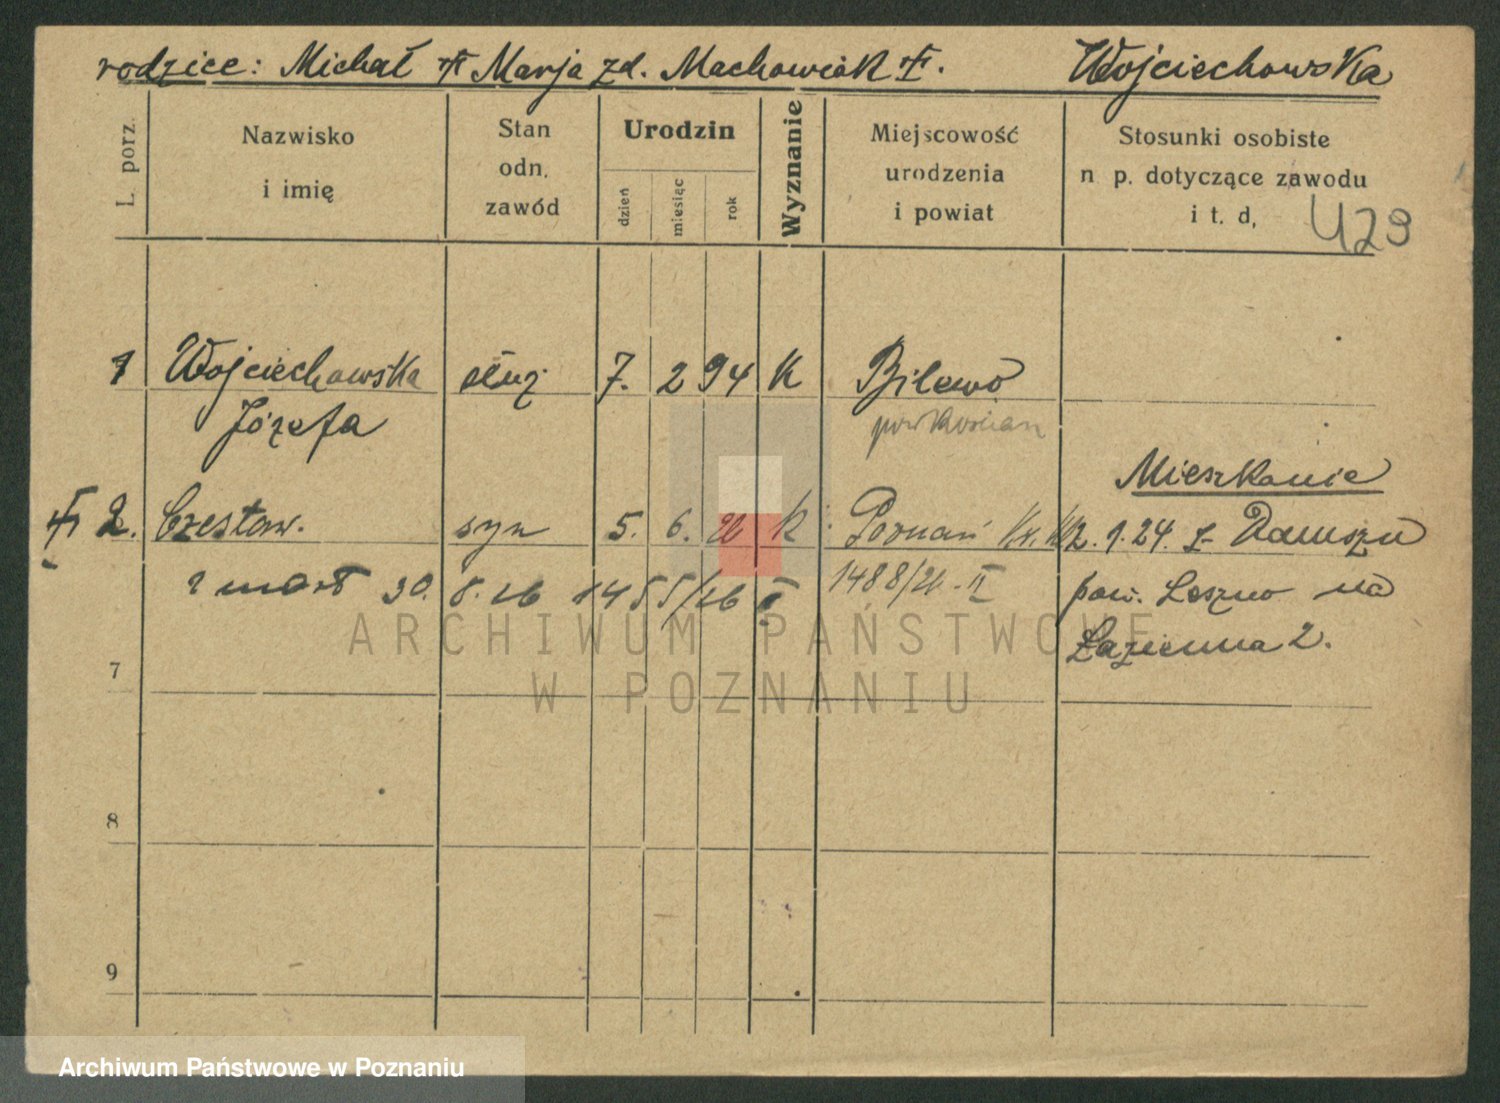 rodzice: Michał Marja zd. Machowiak Wojciechowska
L. porz.
Nazwisko
i imię
Stan
odn.
zawód
Urodzin
dzień
miesiąc
rok
Wyznanie
Miejscowość
urodzenia
i powiat
Stosunki osobiste
n p. dotyczące zawodu
i t. d.
429
1 Wojciechowska służ 7. 2 94 K Bilewo
Józefa pow Kościan
Mieszkanie
2. Czesław. syn 5. 6. 26 K Poznań 2.1.24. z
zmarł 30. 8. 26 1455/26 II 1488/26 - II pow. Leszno na
Łazienna 2.
7
8
9
ARCHIWUM PAŃSTWOWE
W POZNANIU
Archiwum Państwowe w Poznaniu